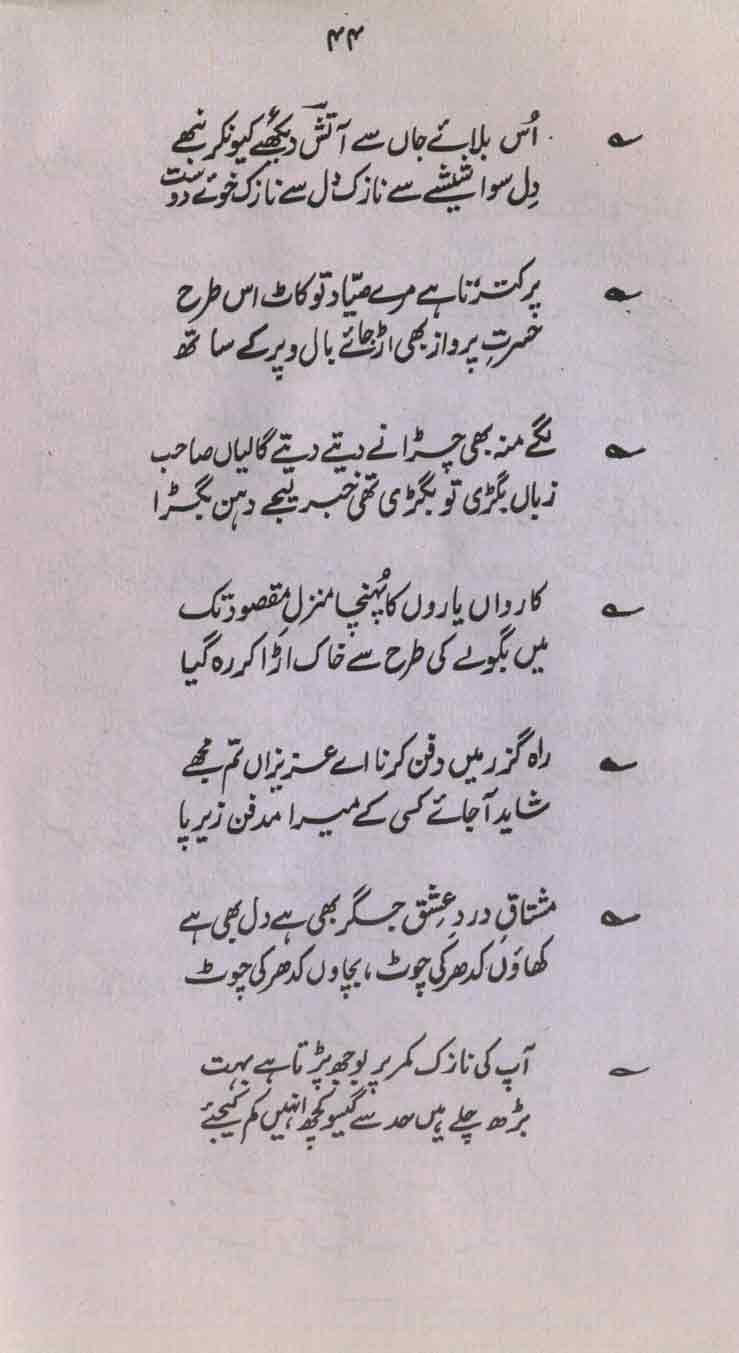 ۴۴
؎ اُس بلائے جاں سے آتشؔ دیکھئے کیونکر نبھے
دِل سوا شیشے سے نازک دل سے نازک خوئے دوست
؎ پر کترنا ہے مرے صیّاد تو کاٹ اس طرح
حسرتِ پرواز بھی اڑ جائے بال و پر کے ساتھ
؎ لگے منہ بھی چڑانے دیتے دیتے گالیاں صاحب
زباں بگڑی تو بگڑی تھی خبر لیجے دہن بگڑا
؎ کارواں یاروں کا پُہنچا منزلِ مقصود تک
میں بگولے کی طرح سے خاک اڑا کر رہ گیا
؎ راہ گزر میں دفن کرنا اے عزیزاں تم مجھے
شاید آ جائے کسی کے میرا مدفن زیر پا
؎ مشتاقِ دردِ عشق جگر بھی ہے دل بھی ہے
کھاؤں کدھر کی چوٹ، بچاوں کدھر کی چوٹ
؎ آپ کی نازک کمر پر بوجھ پڑتا ہے بہت
بڑھ چلے ہیں حد سے گیسو کچھ انہیں کم کیجئے